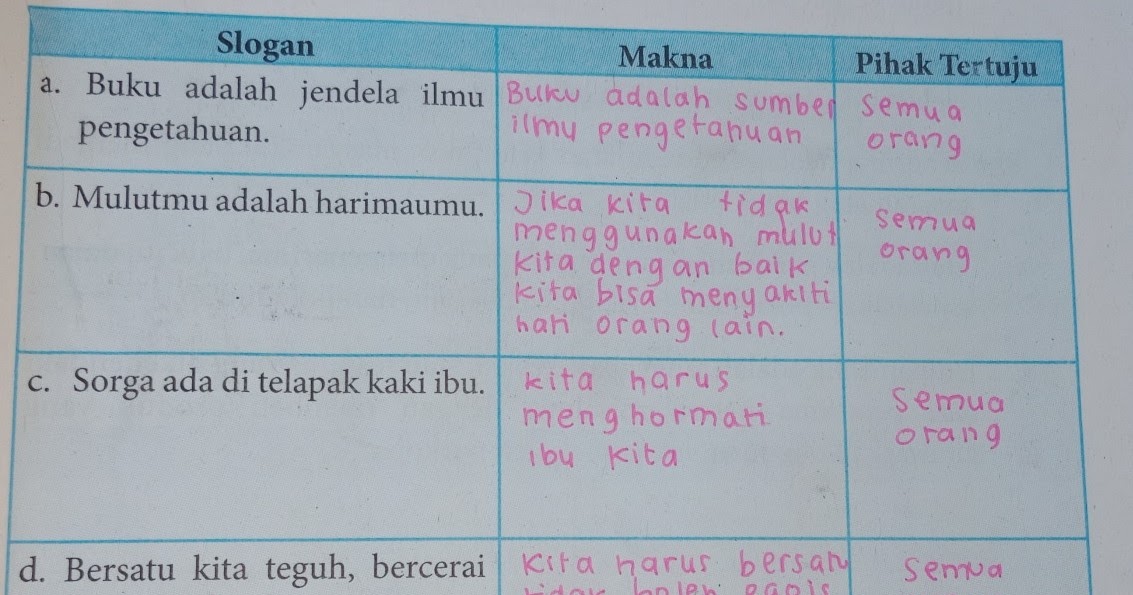 Slogan
Makna
Pihak Tertuju
a. Buku adalah jendela ilmu
pengetahuan.
Buku adalah sumber
ilmu pengetahuan
semua
orang
b. Mulutmu adalah harimaumu.
Jika kita tidak
menggunakan mulut
kita dengan baik
kita bisa menyakiti
hati orang lain.
semua
orang
c. Sorga ada di telapak kaki ibu.
kita harus
menghormati
ibu kita
semua
orang
d. Bersatu kita teguh, bercerai
kita harus bersatu
tidak boleh egois
semua